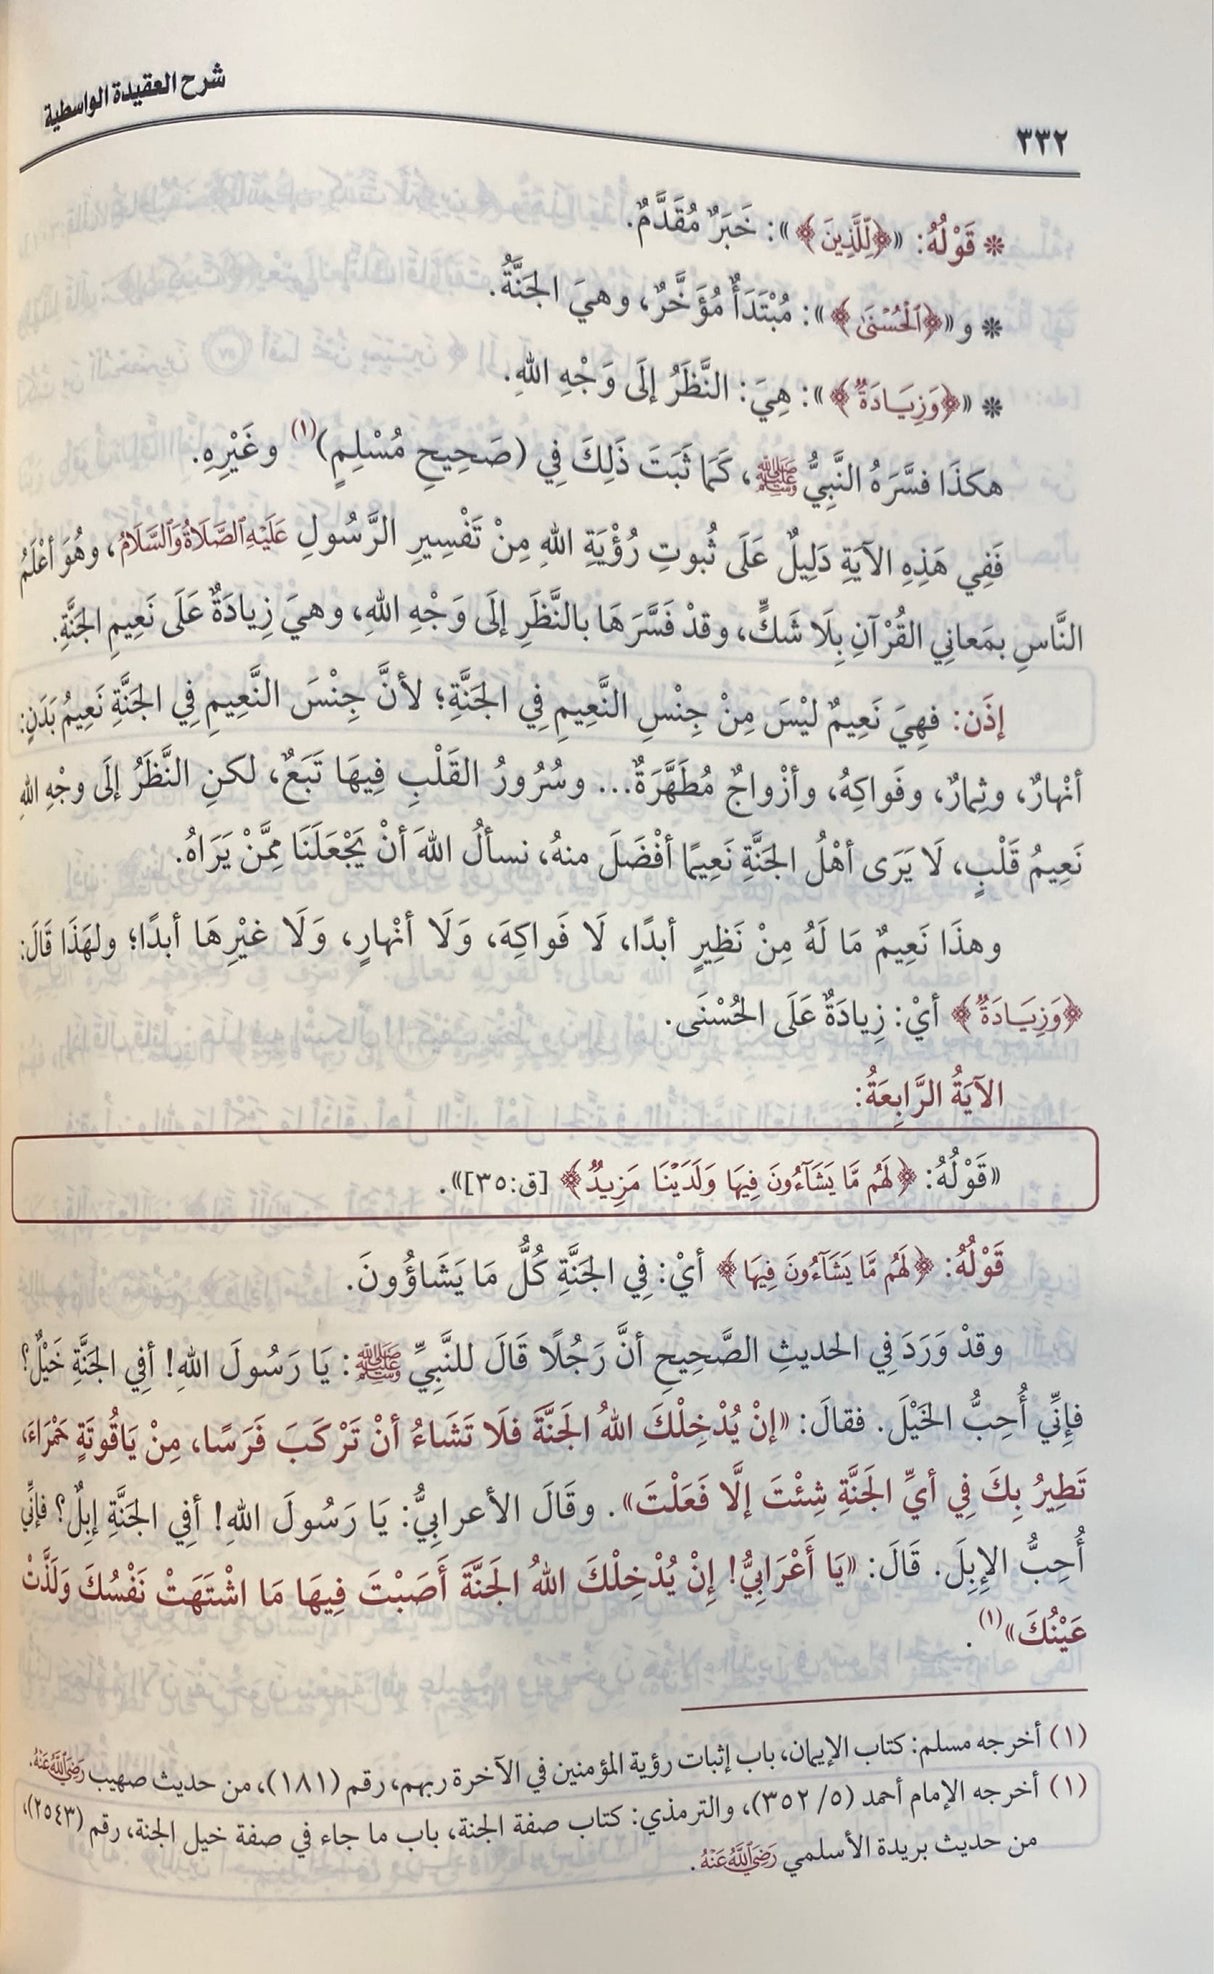 شرح العقيدة الواسطية
٣٣٢
❊ قَوْلُهُ: «﴿لِّلَّذِينَ﴾»: خَبَرٌ مُقَدَّمٌ.
❊ و«﴿الْحُسْنَىٰ﴾»: مُبْتَدَأٌ مُؤَخَّرٌ، وهيَ الجَنَّةُ.
❊ «﴿وَزِيَادَةٌ﴾»: هِيَ: النَّظَرُ إلَى وَجْهِ اللهِ.
هكذَا فسَّرَهُ النَّبِيُّ ﷺ، كَمَا ثَبَتَ ذَلِكَ فِي (صَحِيحِ مُسْلِمٍ)(١) وغَيْرِهِ.
فَفِي هَذِهِ الآيَةِ دَلِيلٌ عَلَى ثُبوتِ رُؤْيَةِ اللهِ مِنْ تَفْسِيرِ الرَّسُولِ عَلَيْهِ الصَّلَاةُ وَالسَّلَامُ، وهُوَ أعْلَمُ
النَّاسِ بمَعانِي القُرْآنِ بِلَا شَكٍّ، وقدْ فَسَّرَهَا بالنَّظَرِ إلَى وَجْهِ اللهِ، وهيَ زِيادَةٌ عَلَى نَعِيمِ الجَنَّةِ.
إذَن: فهِيَ نَعِيمٌ ليْسَ مِنْ جِنْسِ النَّعِيمِ فِي الجَنَّةِ؛ لأنَّ جِنْسَ النَّعِيمِ فِي الجَنَّةِ نَعِيمُ بَدَنٍ:
أنْهارٌ، وثِمارٌ، وفَواكِهُ، وأزْواجٌ مُطَهَّرَةٌ... وسُرُورُ القَلْبِ فِيهَا تَبَعٌ، لكنِ النَّظَرُ إلَى وجْهِ اللهِ
نَعِيمُ قَلْبٍ، لَا يَرَى أهْلُ الجَنَّةِ نَعِيمًا أفْضَلَ منهُ، نسألُ اللهَ أنْ يَجْعَلَنَا مِمَّنْ يَرَاهُ.
وهذَا نَعِيمٌ مَا لَهُ مِنْ نَظِيرٍ أبدًا، لَا فَواكِهَ، وَلَا أنْهارٍ، وَلَا غيْرِهَا أبدًا؛ ولهَذَا قَالَ:
﴿وَزِيَادَةٌ﴾ أيْ: زِيادَةٌ عَلَى الحُسْنَى.
الآيَةُ الرَّابِعَةُ:
«قَوْلُهُ: ﴿لَهُم مَّا يَشَآءُونَ فِيهَا وَلَدَيْنَا مَزِيدٌ﴾ [ق:٣٥]».
قَوْلُهُ: ﴿لَهُم مَّا يَشَآءُونَ فِيهَا﴾ أيْ: فِي الجَنَّةِ كُلُّ مَا يَشَاؤُونَ.
وقدْ وَرَدَ فِي الحديثِ الصَّحِيحِ أنَّ رَجُلًا قَالَ للنَّبِيِّ ﷺ: يَا رَسُولَ اللهِ! أفِي الجَنَّةِ خَيْلٌ؟
فإنِّي أُحِبُّ الخَيْلَ. فقالَ: «إنْ يُدْخِلْكَ اللهُ الجَنَّةَ فلَا تَشَاءُ أنْ تَرْكَبَ فَرَسًا، مِنْ يَاقُوتَةٍ حَمْرَاءَ،
تَطِيرُ بِكَ فِي أيِّ الجَنَّةِ شِئْتَ إلَّا فَعَلْتَ». وقَالَ الأعرابِيُّ: يَا رَسُولَ اللهِ! أفِي الجَنَّةِ إبِلٌ؟ فإنِّي
أُحِبُّ الإبِلَ. قَالَ: «يَا أَعْرَابِيُّ! إِنْ يُدْخِلْكَ اللهُ الجَنَّةَ أَصَبْتَ فِيهَا مَا اشْتَهَتْ نَفْسُكَ وَلَذَّتْ
عَيْنُكَ»(١).
(١) أخرجه مسلم: كتاب الإيمان، باب إثبات رؤية المؤمنين في الآخرة ربهم، رقم (١٨١)، من حديث صهيب رَضِيَ اللهُ عَنْهُ.
(١) أخرجه الإمام أحمد (٥/ ٣٥٢)، والترمذي: كتاب صفة الجنة، باب ما جاء في صفة خيل الجنة، رقم (٢٥٤٣)،
من حديث بريدة الأسلمي رَضِيَ اللهُ عَنْهُ.